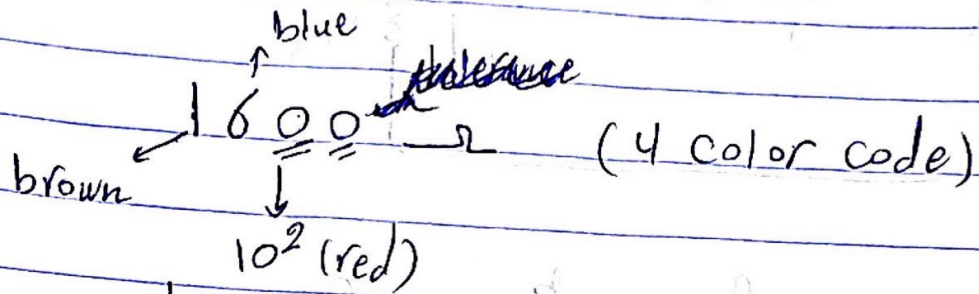 blue
1 6 0 0 Ω (4 color code)
brown
10² (red)